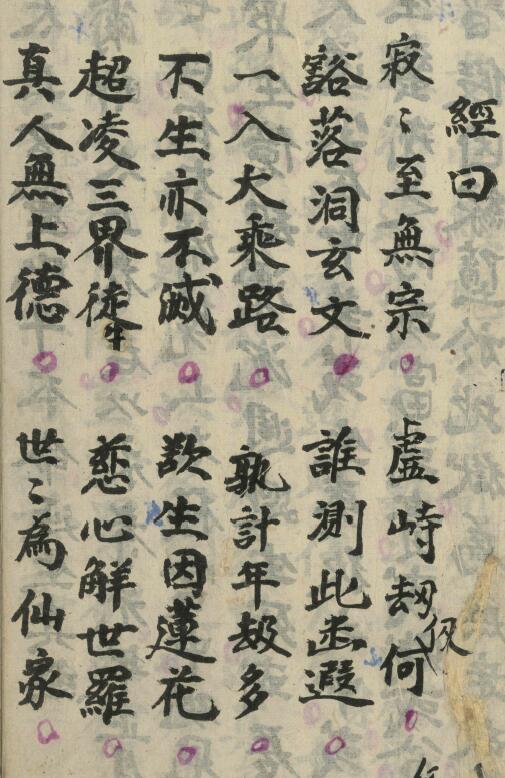 經曰
寂〻至無宗 虛峙劫仞何
豁落洞玄文 誰測此幽遐
一入大乘路 孰計年劫多
不生亦不滅 欲生因蓮花
超凌三界 慈心解世羅
真人無上德 世〻為仙家